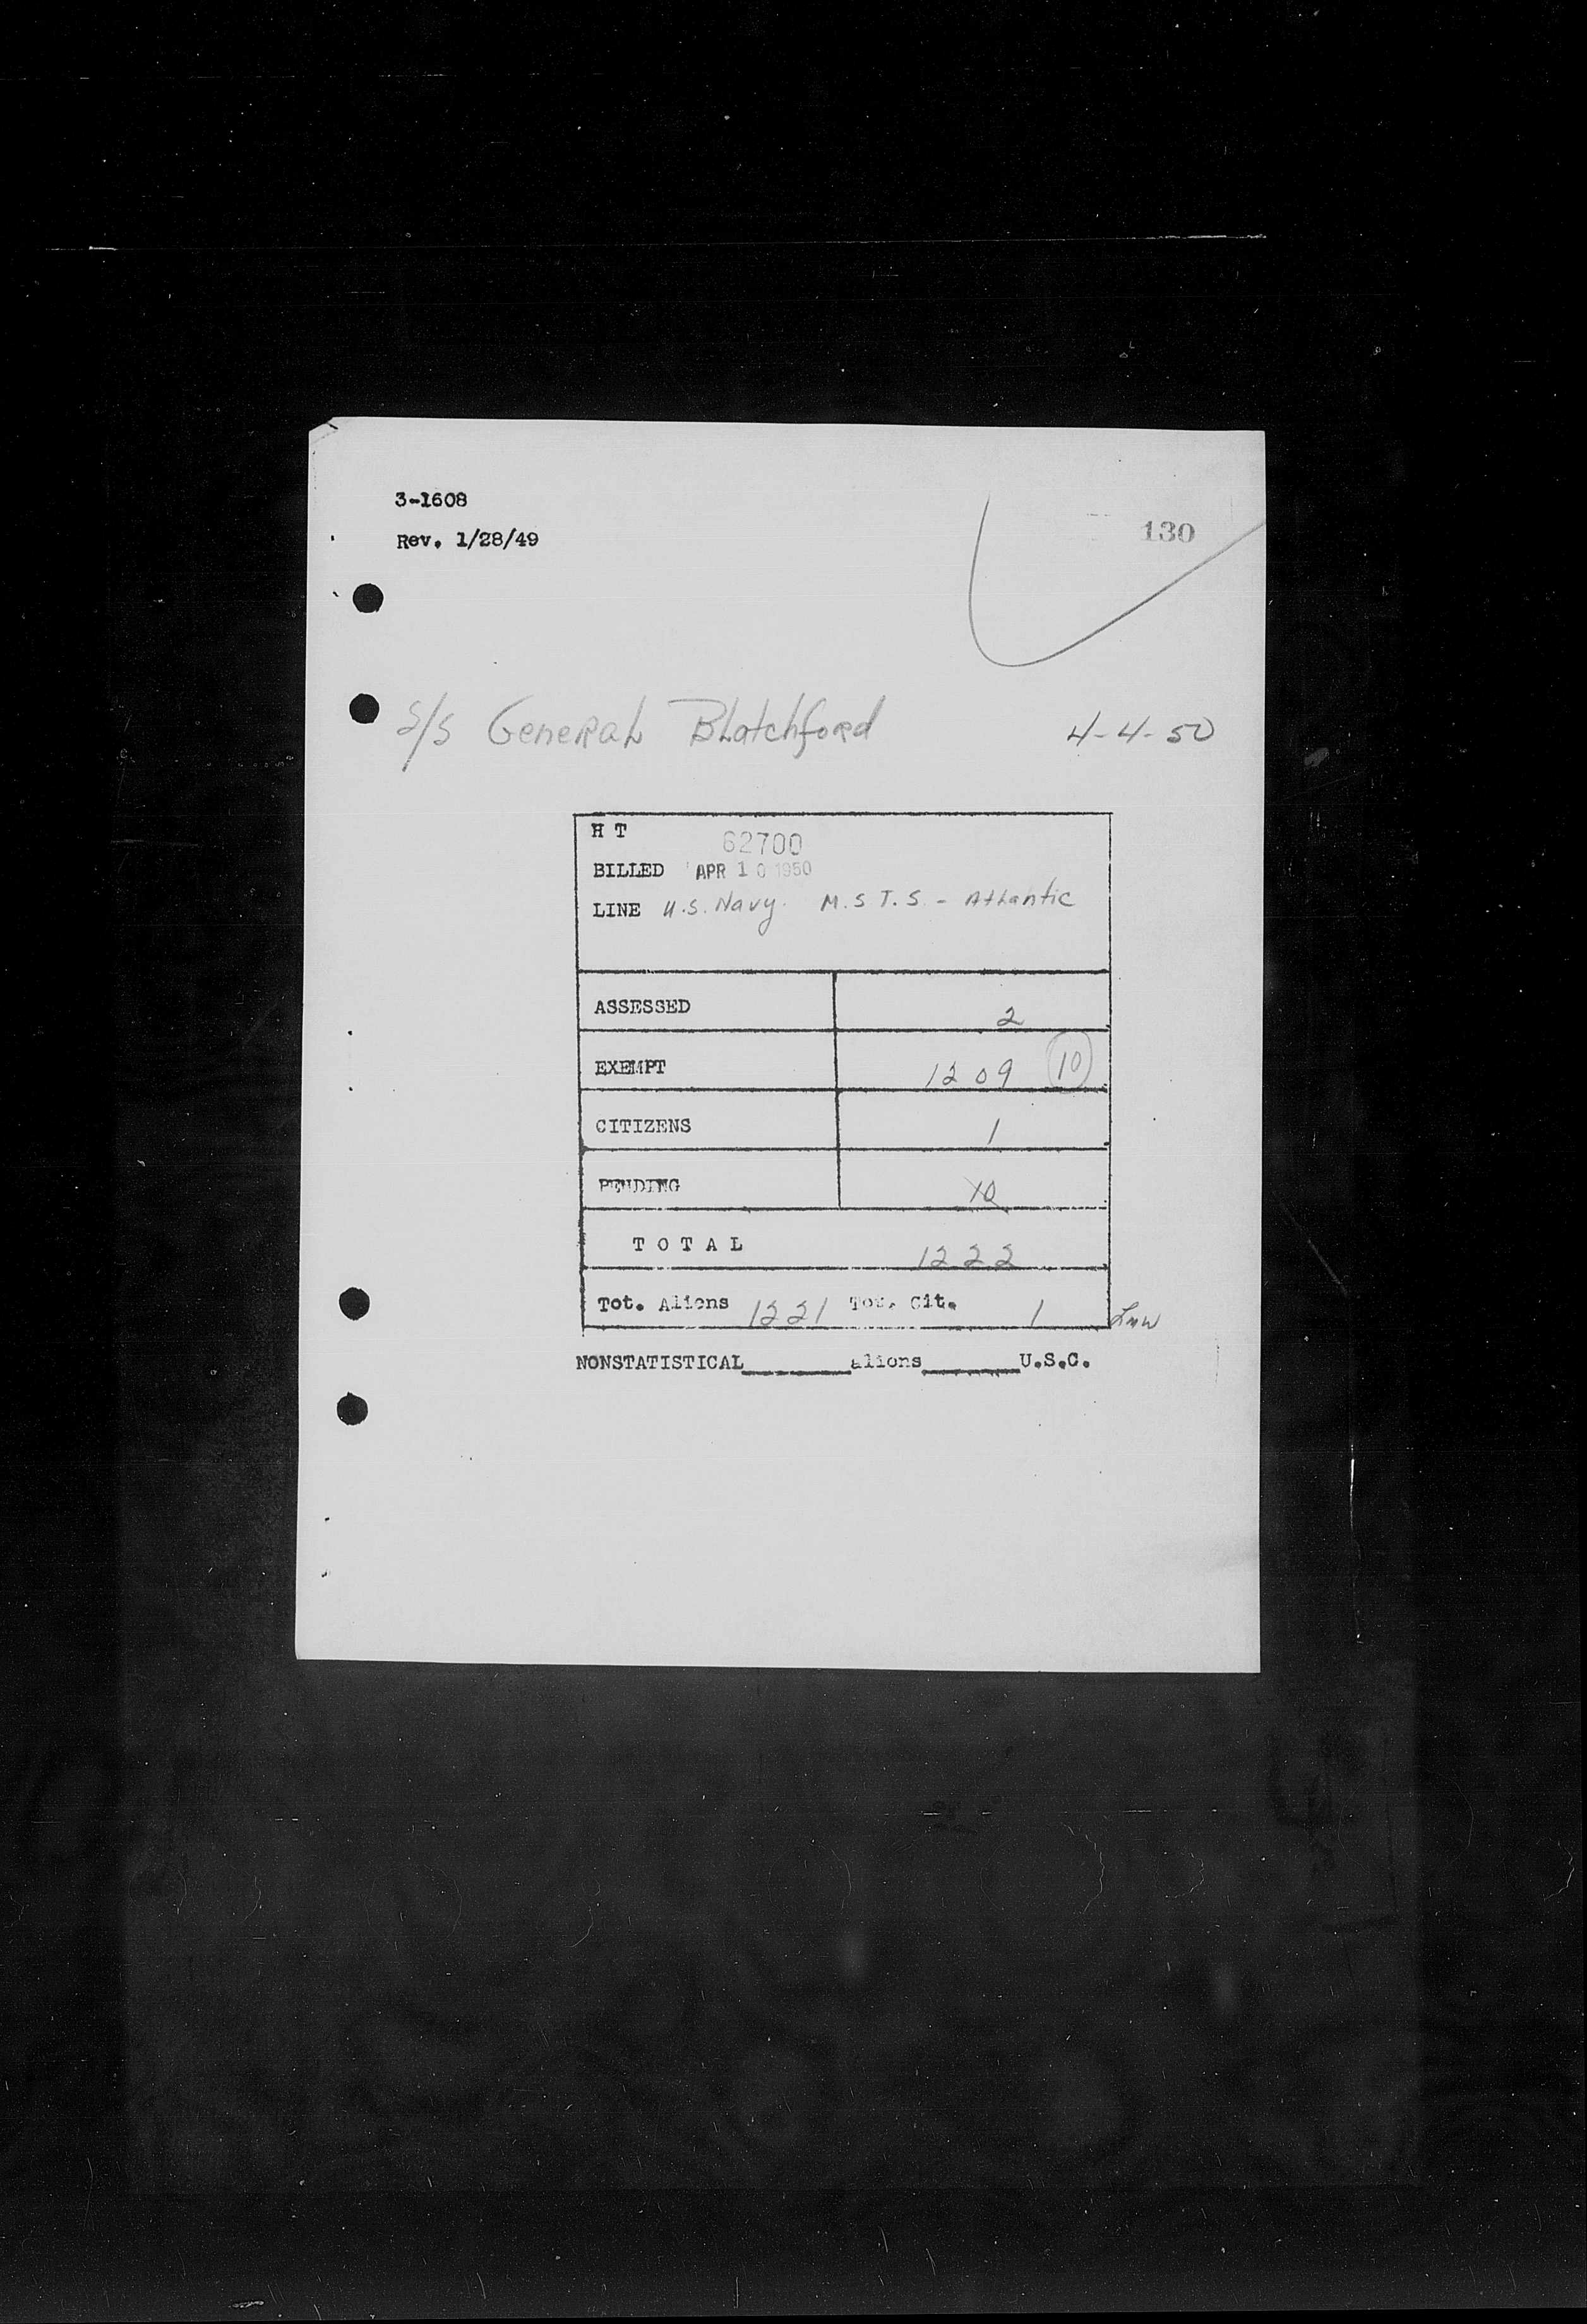 3-1608
130
Rev. 1/28/49
S/S General Blatchford 4-4-50
H T 62700
BILLED APR 10 1950
LINE U.S. Navy. M.S.T.S. - Atlantic
ASSESSED 2
EXEMPT 1209 10
CITIZENS 1
PENDING 10
TOTAL 1222
Tot. Aliens 1221 Tot. Cit. 1
NONSTATISTICAL________aliens_______U.S.C.